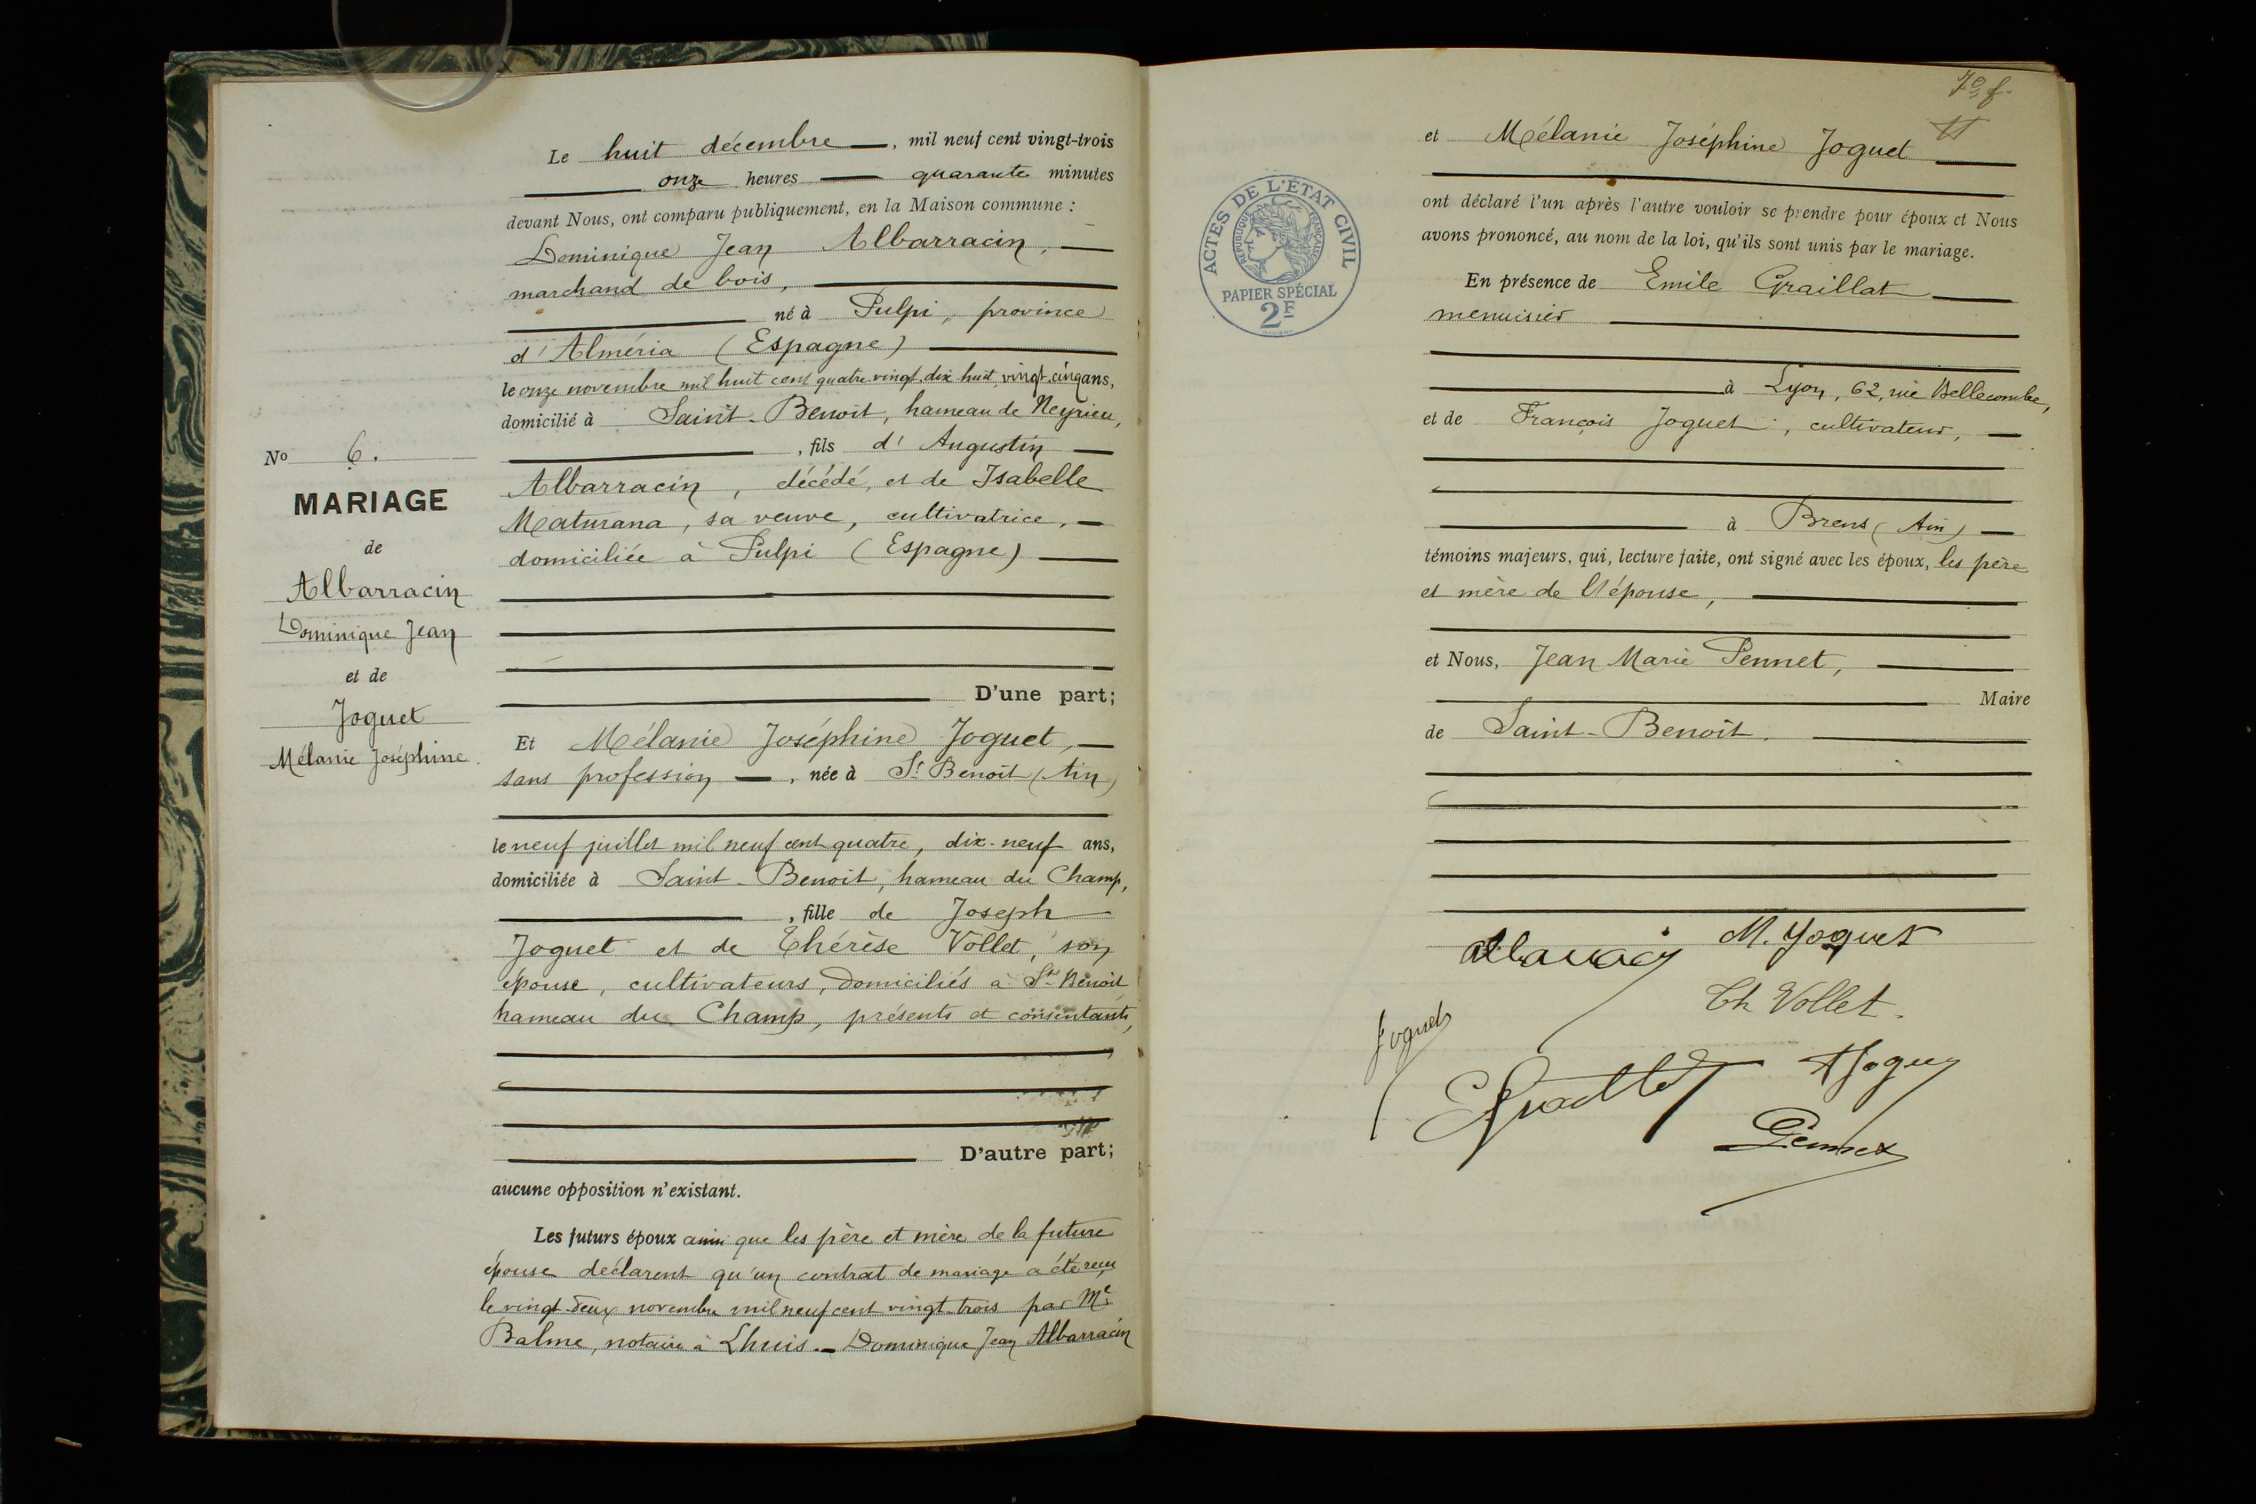 Le huit décembre, mil neuf cent vingt-trois
onze heures quarante minutes
devant Nous, ont comparu publiquement, en la Maison commune :
Dominique Jean Albarracin,
marchand de bois,
né à Pulpi, province
d'Alméria (Espagne)
le onze novembre mil huit cent quatre-vingt-dix huit, vingt-cinq ans,
domicilié à Saint-Benoit, hameau de Neyrieu,
, fils d'Augustin
Albarracin, décédé, et de Isabelle
Maturana, sa veuve, cultivatrice,
domiciliée à Pulpi (Espagne)
D'une part;
Et Mélanie Joséphine Joguet,
sans profession, née à St Benoît (Ain)
le neuf juillet mil neuf cent quatre, dix-neuf ans,
domiciliée à Saint-Benoit, hameau du Champ,
, fille de Joseph
Joguet et de Thérèse Vollet, son
épouse, cultivateurs, domiciliés à St Benoit
hameau du Champ, présents et consentants,
D'autre part;
aucune opposition n'existant.
Les futurs époux ainsi que les père et mère de la future
épouse déclarent qu'un contrat de mariage a été reçu
le vingt-deux novembre mil neuf cent vingt-trois par Me
Balme, notaire à Lhuis. Dominique Jean Albarracin
No 6.
MARIAGE
de
Albarracin
Dominique Jean
et de
Joguet
Mélanie Joséphine.
7e f.
et Mélanie Joséphine Joguet
ont déclaré l'un après l'autre vouloir se prendre pour époux et Nous
avons prononcé, au nom de la loi, qu'ils sont unis par le mariage.
En présence de Emile Graillat
menuisier
à Lyon, 62, rue Bellecombe,
et de François Joguet, cultivateur,
à Brens (Ain)
témoins majeurs, qui, lecture faite, ont signé avec les époux, les père
et mère de l'épouse,
et Nous, Jean Marie Pennet,
Maire
de Saint-Benoît.
M. Joguet
Th Vollet.
Joguet
Pennet
ACTES DE L'ÉTAT CIVIL
RÉPUBLIQUE FRANÇAISE
PAPIER SPÉCIAL
2F